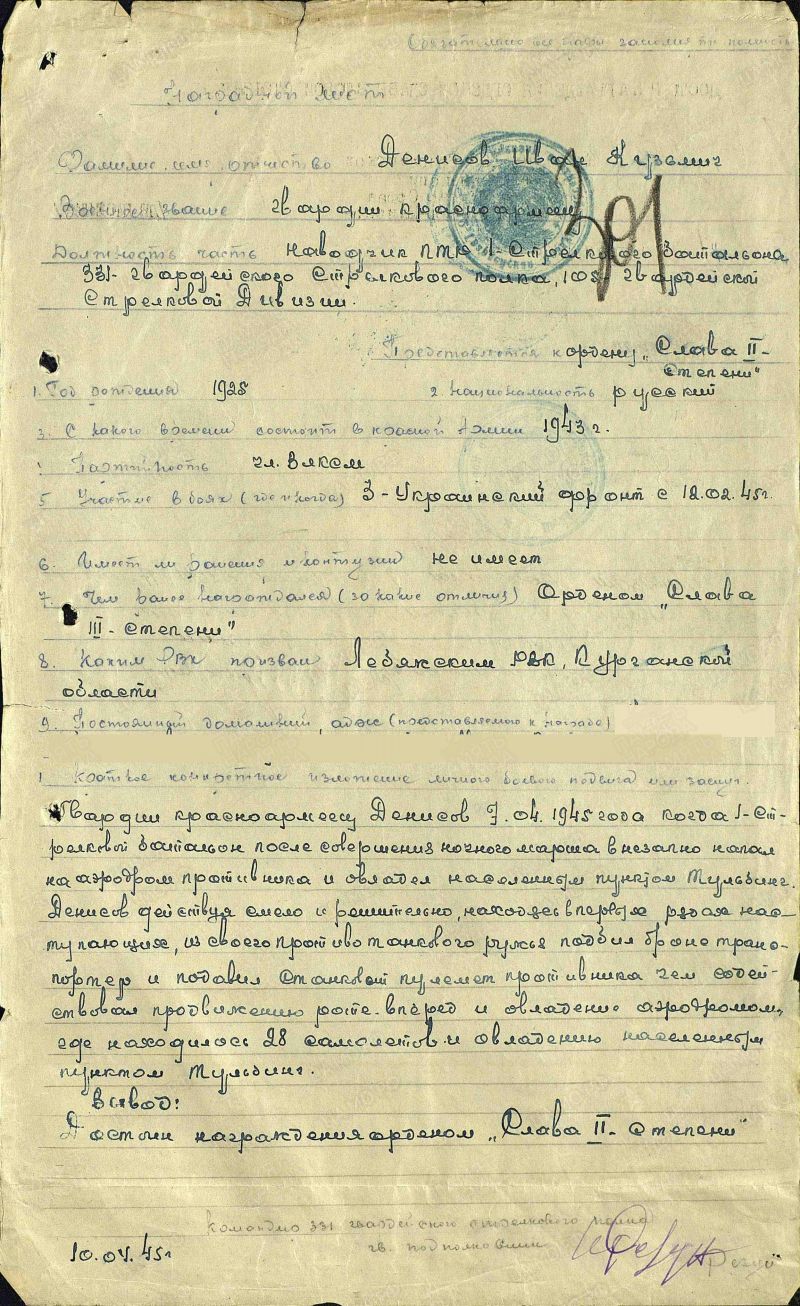 Наградной лист
Фамилие имя отчество Денисов Иван Кузьмич
Военное звание гвардии красноармеец
Должность часть наводчик ПТР 1-Стрелкового Батальона
331-гвардейского Стрелкового полка, гвардейской
Стрелковой Дивизии.
301
Представляется к ордену „Слава II-
Степени"
1. Год рождения 1925 2. национальность русский
3. С какого времени состоит в красной Армии 1943 г.
Партийность чл. ВЛКСМ
5 Участие в боях (где и когда) 3-Украинский фронт с 18.02.45г.
6. Имеет ли ранения и контузии не имеет
7. Чем ранее награждался (за какие отличия) Орденом „Слава
III-Степени"
8. Каким РВК призван Лебяжским РВК, Курганской
области
9. Постоянный домашний адрес (представляемого к награде)
1 Краткое конкретное изложение личного боевого подвига или заслуг.
Гвардии красноармеец Денисов 7.04.1945 года когда 1-Ст-
релковой Батальон после совершения ночного марша внезапно напал
на аэродром противника и овладел населенным пунктом Мульбинг.
Денисов действуя смело и решительно, находясь впервых рядах нас-
тупающих, из своего противотанкового ружья подбил бронетранс-
портер и подавил Станковый пулемет противника чем содей-
ствовал продвижению роты вперед и овладение аэродромом,
где находилось 28 самолетов и овладению населенным
пунктом Мульбинг.
Вывод:
Достоин награждения орденом „Слава II-Степени"
Командир 331 гвардейского стрелкового полка
гв. подполковник
10.04.45г